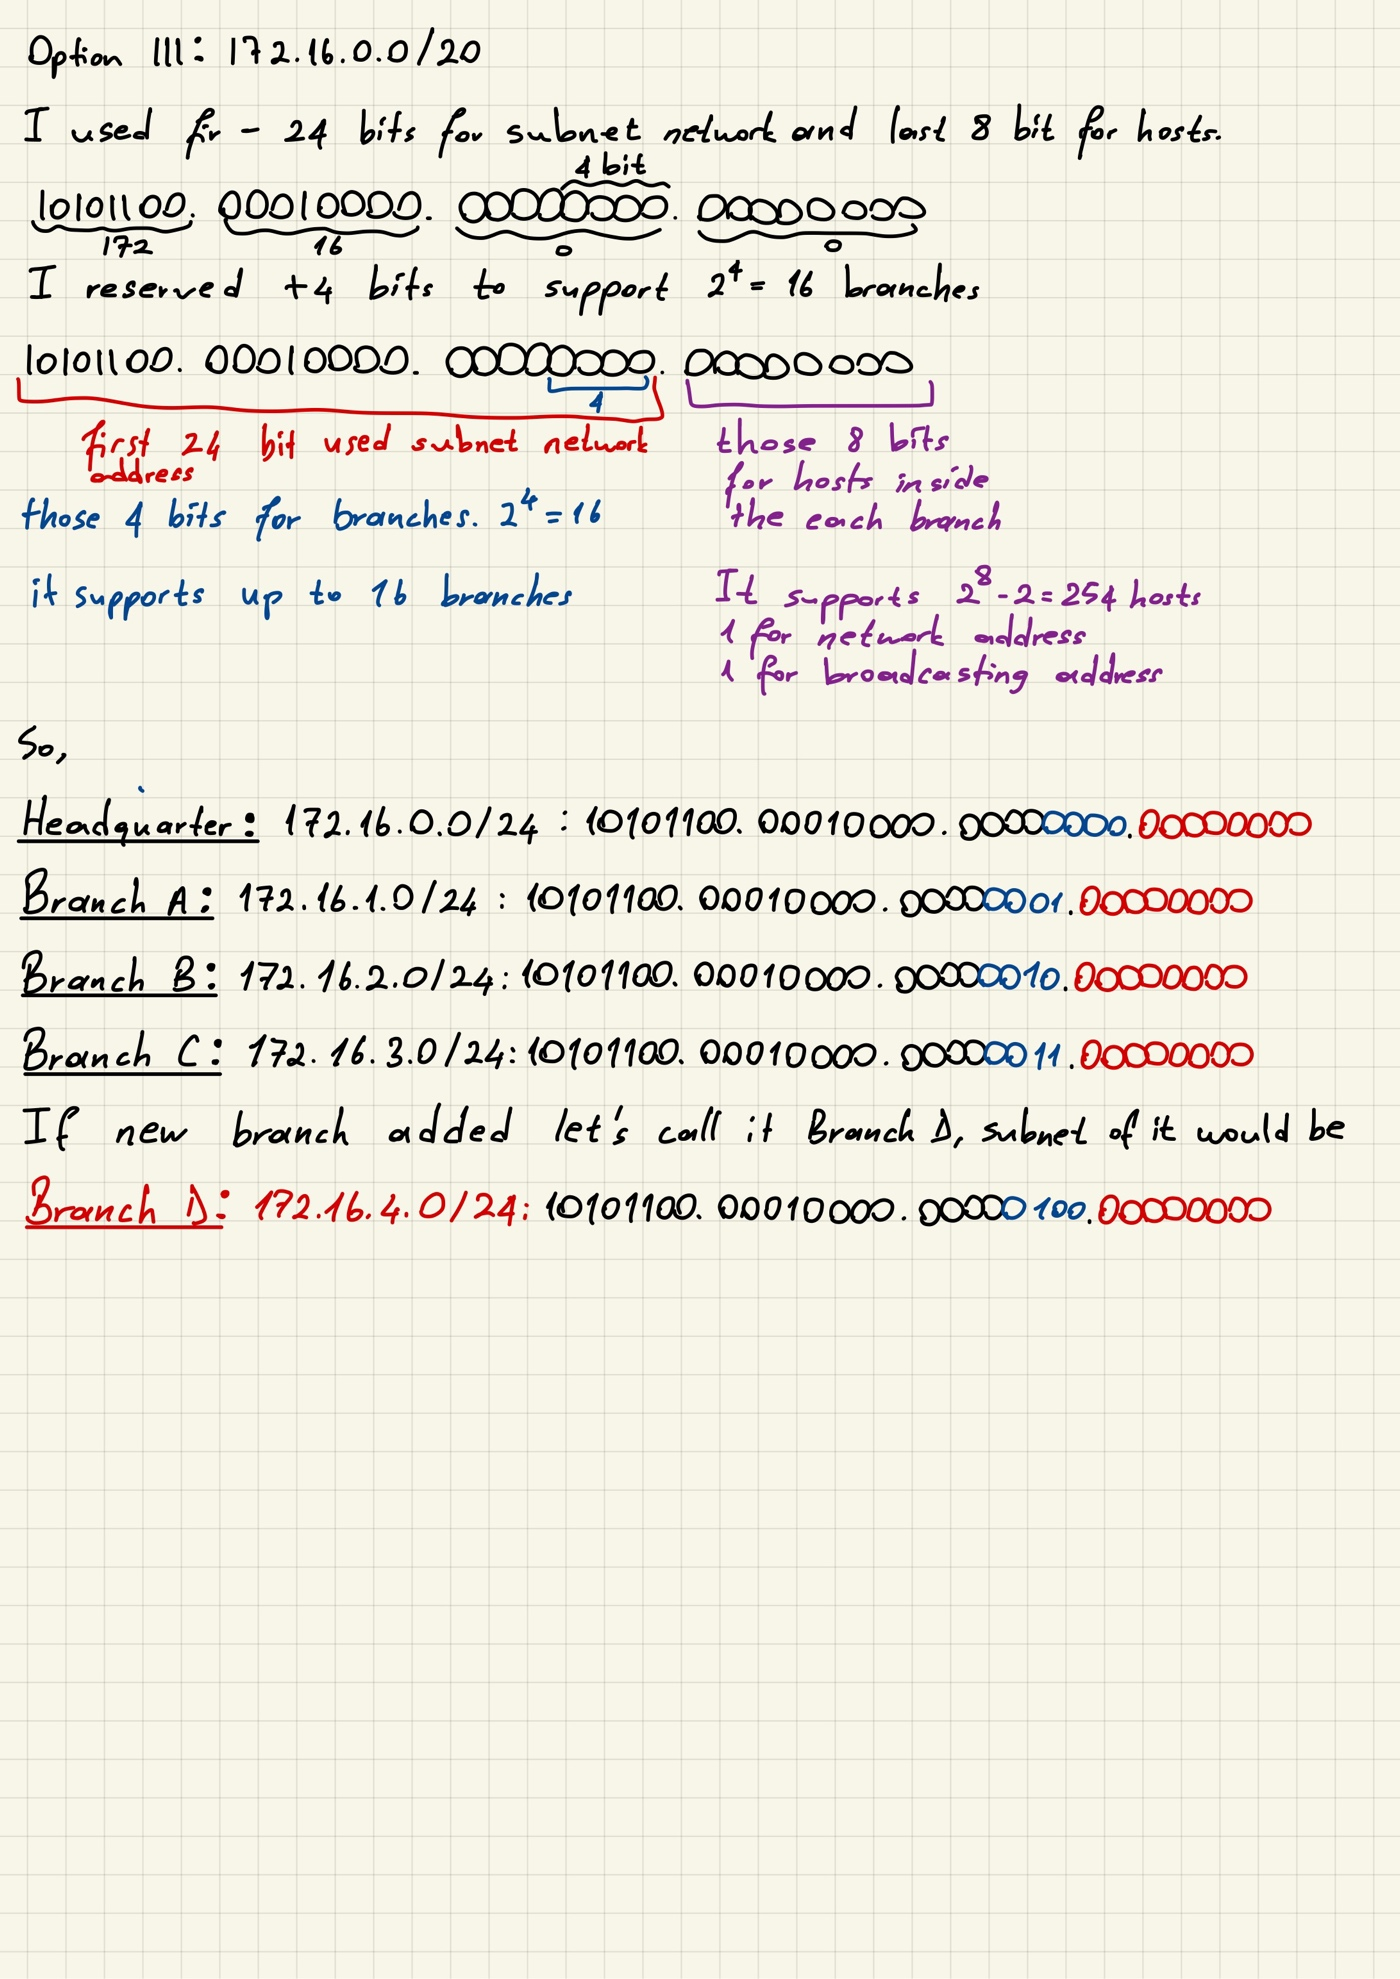 Option III: 172.16.0.0/20
I used fir - 24 bits for subnet network and last 8 bit for hosts.
4 bit
10101100. 00010000. 00000000. 00000000
172 16 0 0
I reserved +4 bits to support 2^4 = 16 branches
10101100. 00010000. 00000000. 00000000
4
first 24 bit used subnet network
address
those 8 bits
for hosts inside
the each branch
those 4 bits for branches. 2^4 = 16
it supports up to 16 branches
It supports 2^8 - 2 = 254 hosts
1 for network address
1 for broadcasting address
So,
Headquarter: 172.16.0.0/24 : 10101100. 00010000. 00000000. 00000000
Branch A: 172.16.1.0/24 : 10101100. 00010000. 00000001. 00000000
Branch B: 172.16.2.0/24: 10101100. 00010000. 00000010. 00000000
Branch C: 172.16.3.0/24: 10101100. 00010000. 00000011. 00000000
If new branch added let's call it Branch D, subnet of it would be
Branch D: 172.16.4.0/24: 10101100. 00010000. 00000100. 00000000